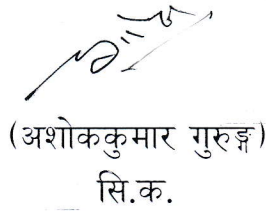 (अशोककुमार गुरुङ्ग)
सि.क.